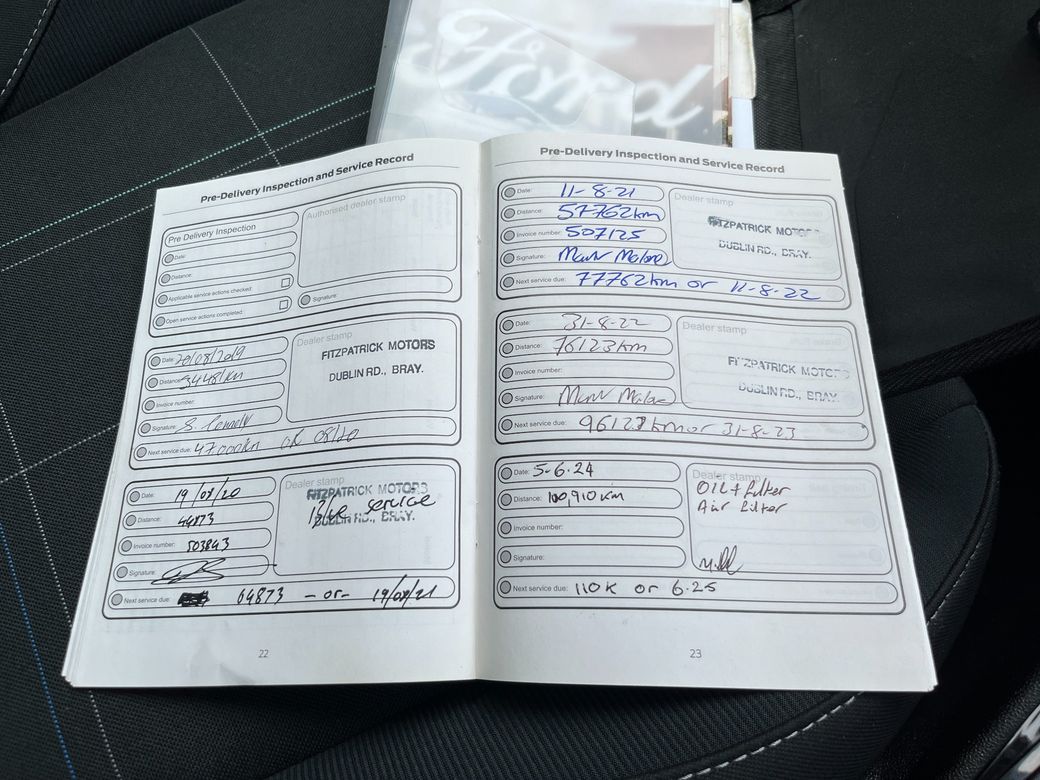 Ford
Pre-Delivery Inspection and Service Record
Pre Delivery Inspection
Date:
Distance:
Applicable service actions checked:
Open service actions completed:
Authorised dealer stamp
Signature:
Date: 20/08/2019
Distance:
Invoice number:
Signature:
Next service due: 47000km OR 08/20
Dealer stamp
FITZPATRICK MOTORS
DUBLIN RD., BRAY.
Date: 19/08/20
Distance: 44873
Invoice number: 503843
Signature:
Next service due: 64873 - or - 19/08/21
Dealer stamp
FITZPATRICK MOTORS
Blue service
DUBLIN RD., BRAY.
22
Pre-Delivery Inspection and Service Record
Date: 11-8-21
Distance: 57762km
Invoice number: 507125
Signature:
Next service due: 77762km or 11-8-22
Dealer stamp
FITZPATRICK MOTORS
DUBLIN RD., BRAY.
Date: 31-8-22
Distance: 76123km
Invoice number:
Signature:
Next service due: 96123km or 31-8-23
Dealer stamp
FITZPATRICK MOTORS
DUBLIN RD., BRAY.
Date: 5-6.24
Distance: 100,910 km
Invoice number:
Signature:
Next service due: 110K or 6.25
Dealer stamp
OIL + filter
Air filter
23